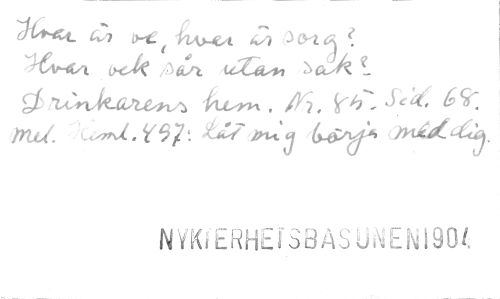 Hvar är ve, hvar är sorg?
Hvar ock sår utan sak?
Drinkarens hem. Nr. 85. Sid. 68.
mel. Heml. 497: Låt mig börja med dig.
NYKTERHETSBASUNEN 1904